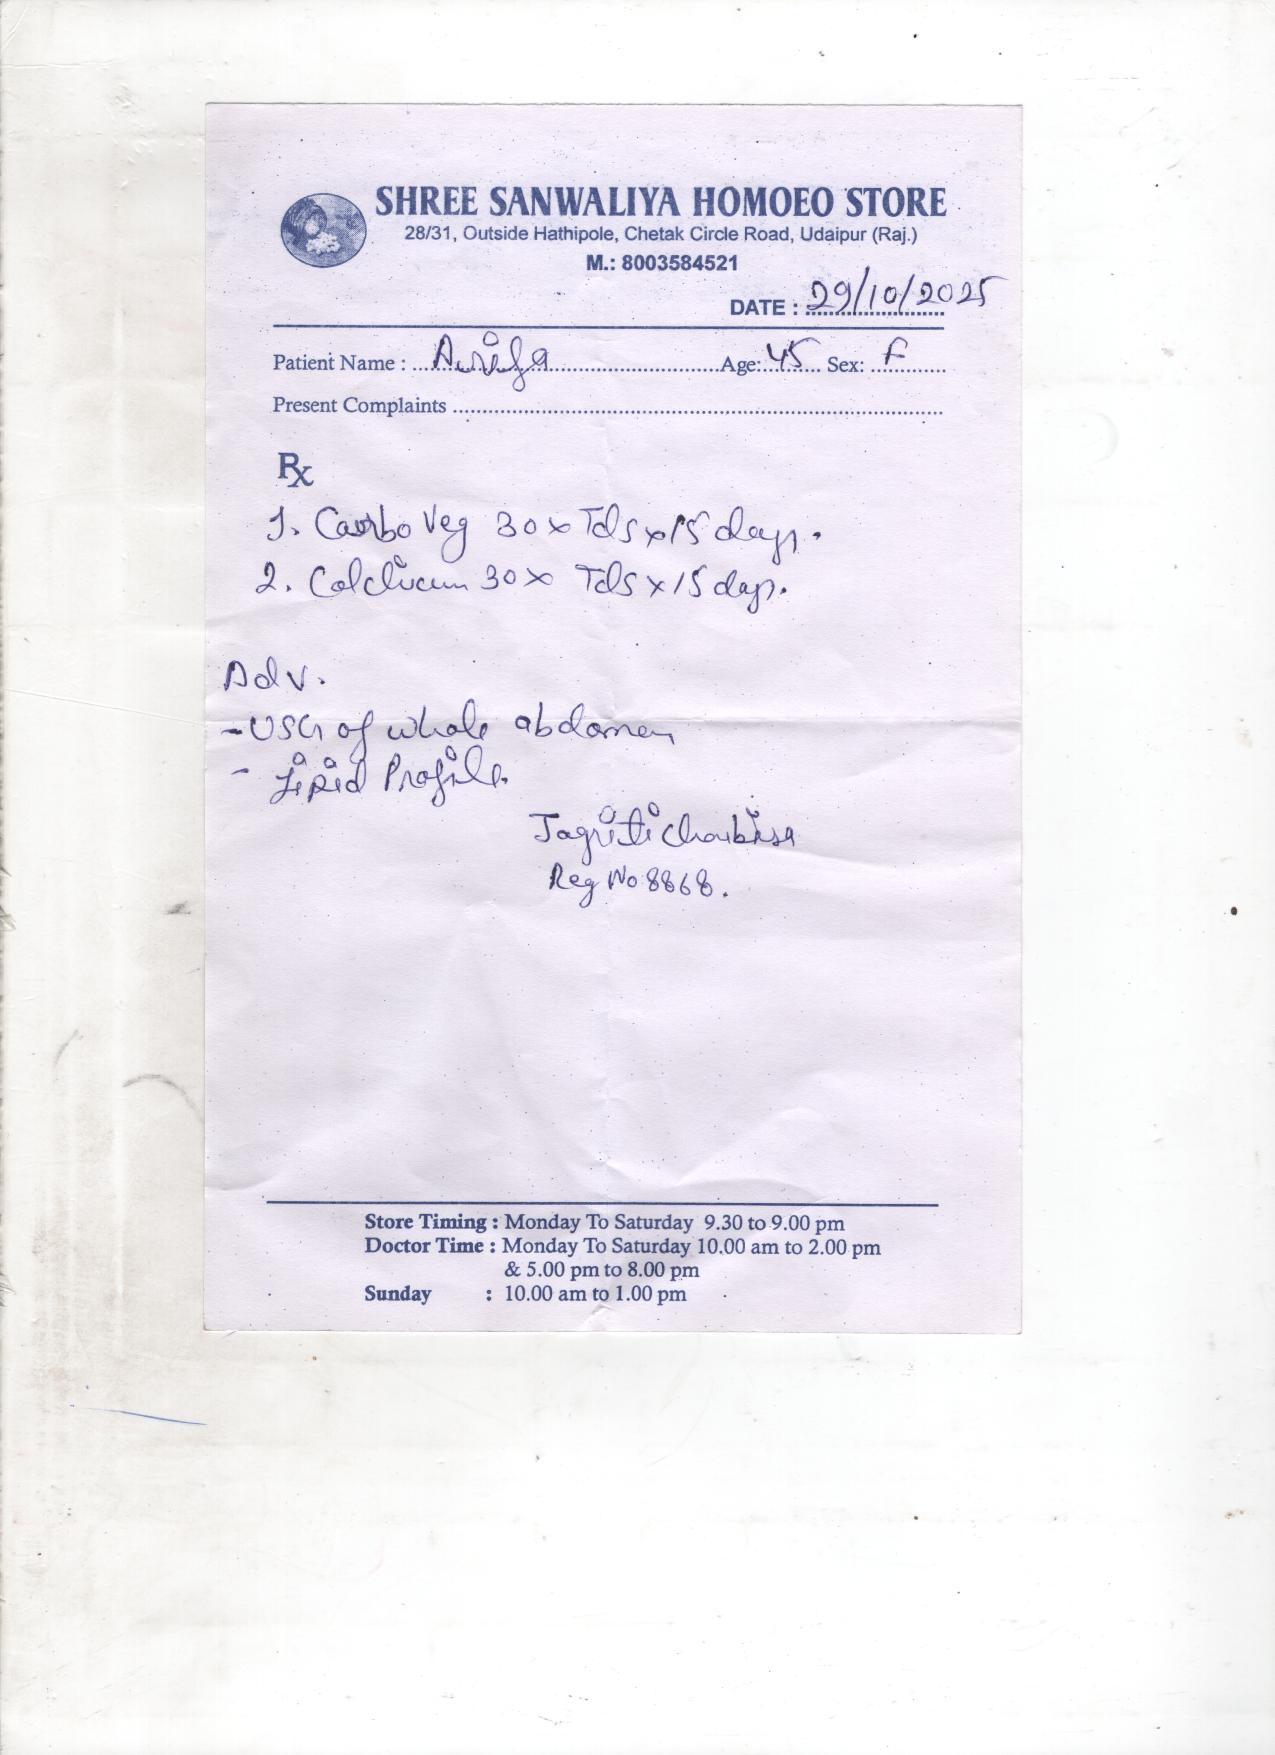 SHREE SANWALIYA HOMOEO STORE
28/31, Outside Hathipole, Chetak Circle Road, Udaipur (Raj.)
M.: 8003584521
DATE : 29/10/2025
Patient Name : Arifa Age: 45 Sex: F
Present Complaints
Rx
1. Carbo Veg 30 x Tds x 15 days.
2. Colchicum 30 x Tds x 15 days.
Adv.
- USG of whole abdomen
- Lipid Profile.
Jagriti Choubisa
Reg No 8868.
Store Timing : Monday To Saturday 9.30 to 9.00 pm
Doctor Time : Monday To Saturday 10.00 am to 2.00 pm
& 5.00 pm to 8.00 pm
Sunday : 10.00 am to 1.00 pm